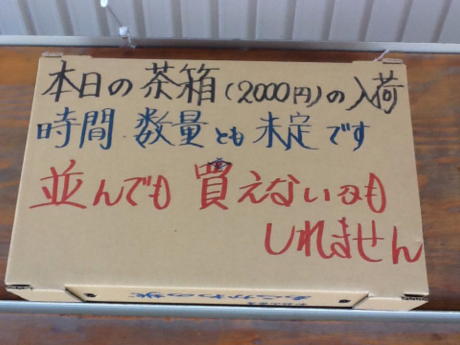 本日の茶箱(2000円)の入荷
時間 数量とも未定です
並んでも買えないかも
しれません